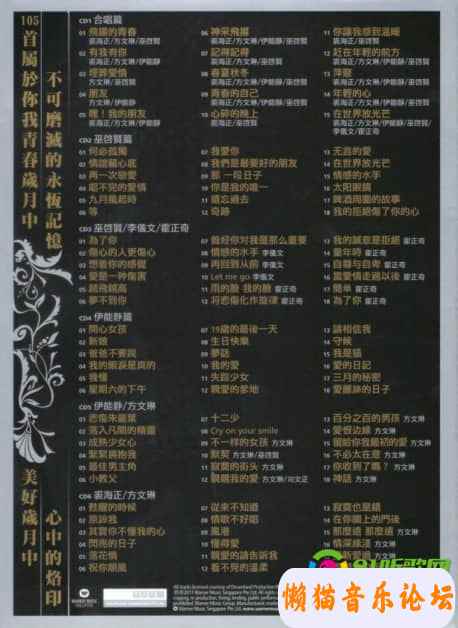 105首屬於你我青春歲月中
不可磨滅的永恆記憶
美好歲月中
心中的烙印
CD1 合唱篇
01 飛躍的青春
裘海正/方文琳/伊能靜/巫啓賢
02 有我有你
裘海正/方文琳/伊能靜
03 埋葬愛情
方文琳/巫啓賢
04 朋友
方文琳/伊能靜
05 嘿！我的朋友
裘海正/方文琳/伊能靜
06 神采飛揚
裘海正/方文琳/伊能靜/巫啓賢
07 記得記得
裘海正/方文琳/伊能靜
08 春夏秋冬
裘海正/方文琳/伊能靜
09 青春的自己
裘海正/方文琳/伊能靜
10 心碎的晚上
裘海正/方文琳/伊能靜
11 你讓我感到溫暖
裘海正/方文琳/巫啓賢
12 趕在年輕的前方
裘海正/方文琳/伊能靜
13 萍聚
裘海正/方文琳/伊能靜
14 年輕的心
裘海正/方文琳/伊能靜
15 在世界放光芒
裘海正/方文琳/伊能靜/巫啓賢/
李儀文/霍正奇
CD2 巫啓賢篇
01 何必孤獨
02 情誼藏心底
03 再一次戀愛
04 唱不完的愛情
05 九月風起時
06 等
07 我愛你
08 我們是最要好的朋友
09 那一段日子
10 你是我的唯一
11 遺忘過去
12 奇跡
13 無言的愛
14 在世界放光芒
15 情感的水手
16 太陽眼鏡
17 啤酒周圍的故事
18 我的拒絕傷了你的心
CD3 巫啓賢/李儀文/霍正奇
01 為了你
02 傷心的人更傷心
03 想著你的感覺
04 愛是一種傷害
05 越飛越高
06 夢不到你
07 做好你對我是那么重要
08 情感的水手 李儀文
09 再回到從前 李儀文
10 Let me go 李儀文
11 雨的臉 我的臉 霍正奇
12 將悲傷化作旋律 霍正奇
13 我的誠意是拒絕 霍正奇
14 當年時 霍正奇
15 自尊與自卑 霍正奇
16 當愛情走過以後 霍正奇
17 簡單 霍正奇
18 為了你 霍正奇
CD4 伊能靜篇
01 開心女孩
02 新娘
03 爸爸不要說
04 我的眼淚是真的
05 獨憧
06 星期六的下午
07 19歲的最後一天
08 生日快樂
09 夢話
10 我的愛
11 失蹤少女
12 親愛的爹地
13 請相信我
14 守候
15 我是貓
16 愛的日記
17 三月的秘密
18 愛麗絲的日子
CD5 伊能靜/方文琳
01 悲傷朱麗葉
02 落入凡間的精靈
03 成熟少女心
04 緊緊擁抱我
05 最佳男主角
06 小教父
07 十二少
08 Cry on your smile
09 不一樣的女孩 方文琳
10 默契 方文琳/巫啓賢
11 寂寞的街頭 方文琳
12 親親我的愛 方文琳/何文正
13 百分之百的男孩 方文琳
14 愛恨邊緣 方文琳
15 留給你我最初的愛 方文琳
16 不必太在意 方文琳
17 你收到了嗎？ 方文琳
18 神話 方文琳
CD6 裘海正/方文琳
01 甦醒的時候
02 原諒我
03 其實你不懂我的心
04 閃亮的日子
05 落花情
06 祝你順風
07 從來不知道
08 情歌不好唱
09 風潮
10 懂得愛
11 親愛的請告訴我
12 看不完的溫柔
13 寂寞也是錯
14 在你關上的門後
15 那麼遠 那麼遠 方文琳
16 情深緣淺 方文琳
方文琳
WARNER MUSIC
51听歌网
懒猫音乐论坛